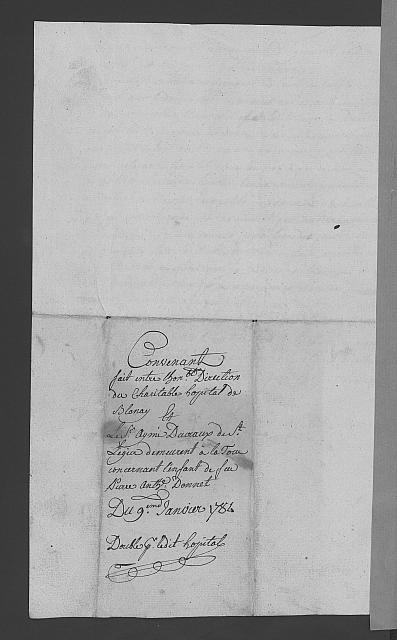 Convenant
fait entre Honble Direction
du Charitable hopital de
Blonay Et
Le Sr Aymé Ducraux de St
Legier demeurent à la Tour
concernant l'enfant de feu
Pierre Anthe Donnet
Du 9eme Janvier 178
Double pr ledit hopital